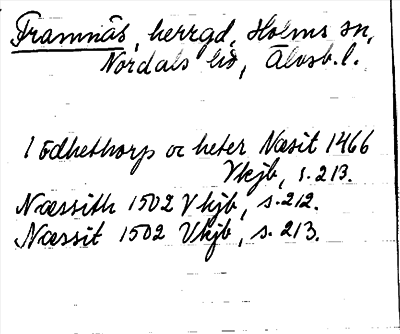 Framnäs, herrgd, Holms sn,
Nordals hd, Älvsb. l.
1 ödhethorp oc heter Næsit 1466
Vkjb, s. 213.
Næssith 1502 Vkjb, s. 212.
Næssit 1502 Vkjb, s. 213.